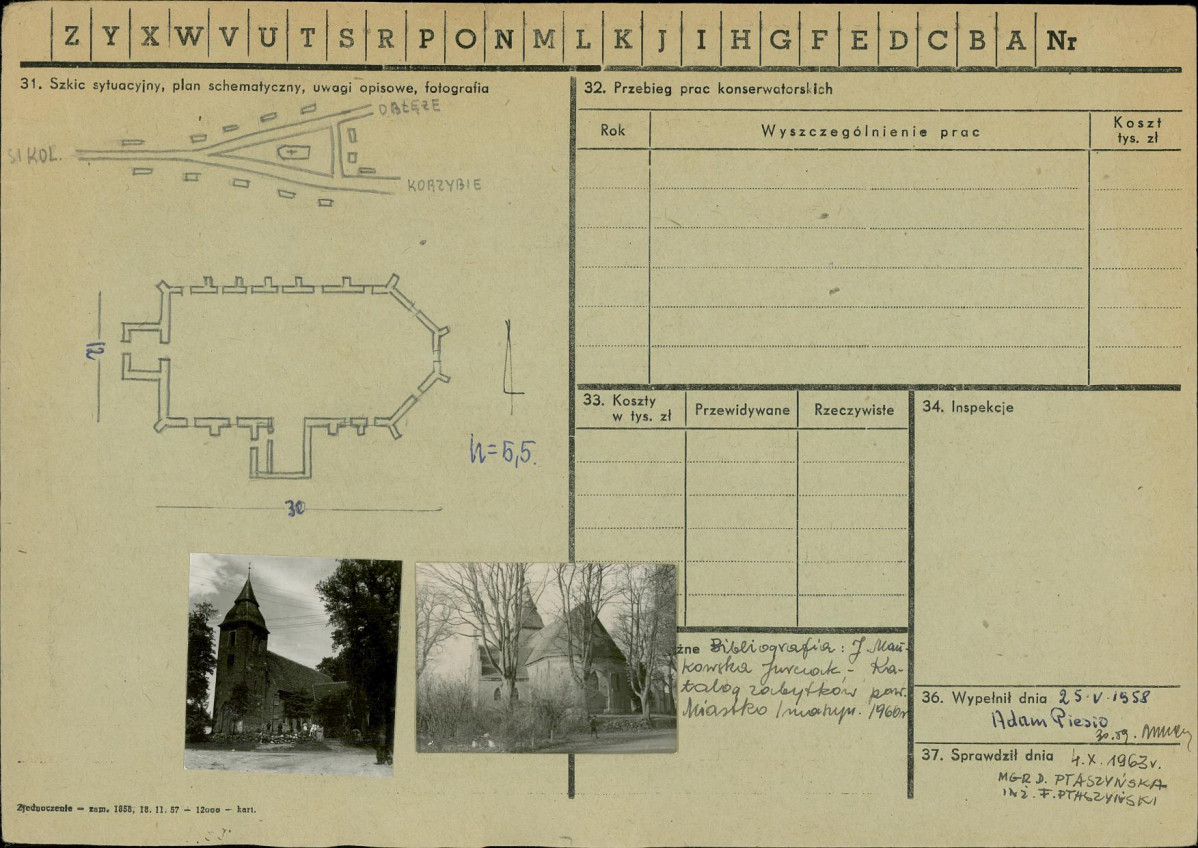 Z Y X W V U T S R P O N M L K J I H G F E D C B A Nr
31. Szkic sytuacyjny, plan schematyczny, uwagi opisowe, fotografia
OBŁĘŻE
SIKOŁ.
KORZYBIE
12
h=5,5.
30
32. Przebieg prac konserwatorskich
Rok
Wyszczególnienie prac
Koszt
tys. zł
33. Koszty
w tys. zł
Przewidywane
Rzeczywiste
34. Inspekcje
żne Bibliografia: J Mań-
kowska Jurciak - Ka-
talog zabytków pow.
Miastko /maszyn. 1960r
36. Wypełnił dnia 25.V.1958
Adam Piesio
37. Sprawdził dnia 4.X.1963r.
MGR D. PTASZYŃSKA
INŻ. F. PTASZYŃSKI
Zjednoczenie — zam. 1858, 18. 11. 57 — 12000 — kart.